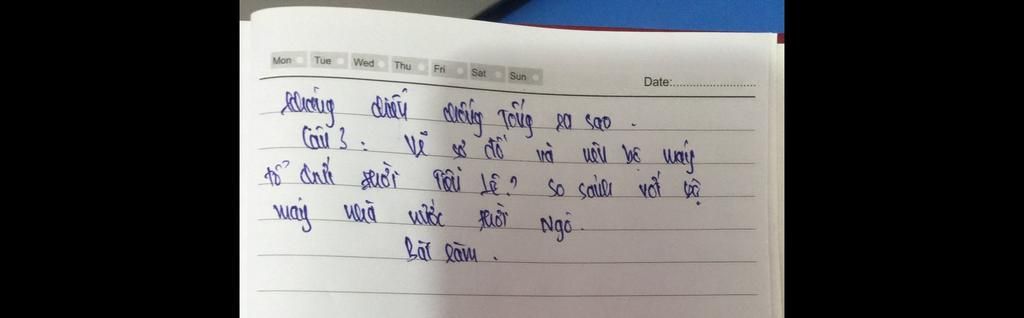 Mon Tue Wed Thu Fri Sat Sun
Date:
kháng chiến chống Tống ra sao.
Câu 3: Vẽ sơ đồ và nêu bộ máy
tổ chức thời Tiền Lê? So sánh với bộ
máy nhà nước thời Ngô.
Bài làm.